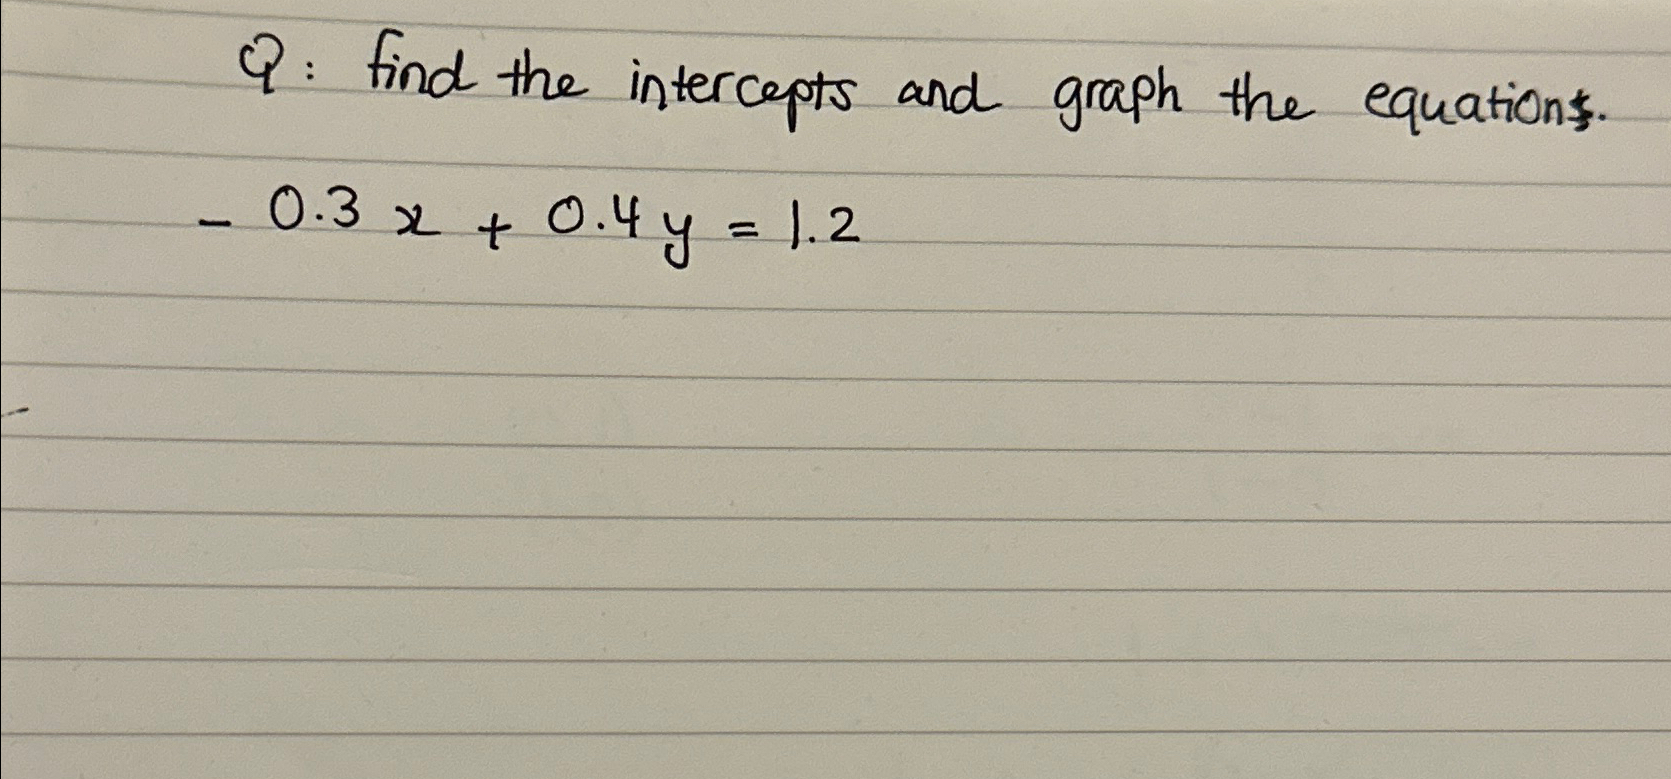 Q: find the intercepts and graph the equations.
- 0.3 x + 0.4 y = 1.2